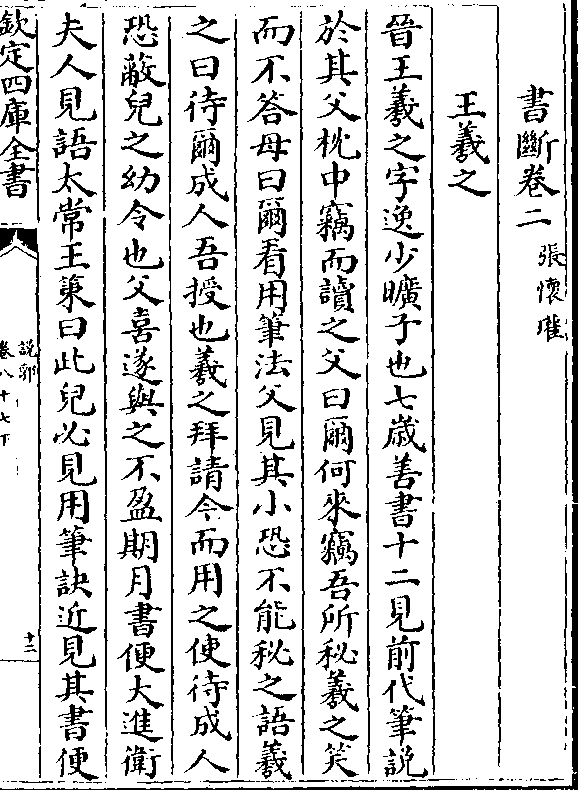 書斷卷二 張懷瓘
王羲之
晉王羲之字逸少曠子也七歲善書十二見前代筆説
於其父枕中竊而讀之父曰爾何來竊吾所秘羲之笑
而不答母曰爾看用筆法父見其小恐不能秘之語羲
之曰待爾成人吾授也羲之拜請今而用之使待成人
恐蔽兒之幼令也父喜遂與之不盈期月書便大進衛
夫人見語太常王策曰此兒必見用筆訣近見其書便
欽定四庫全書
説郛
卷八十七下
十二